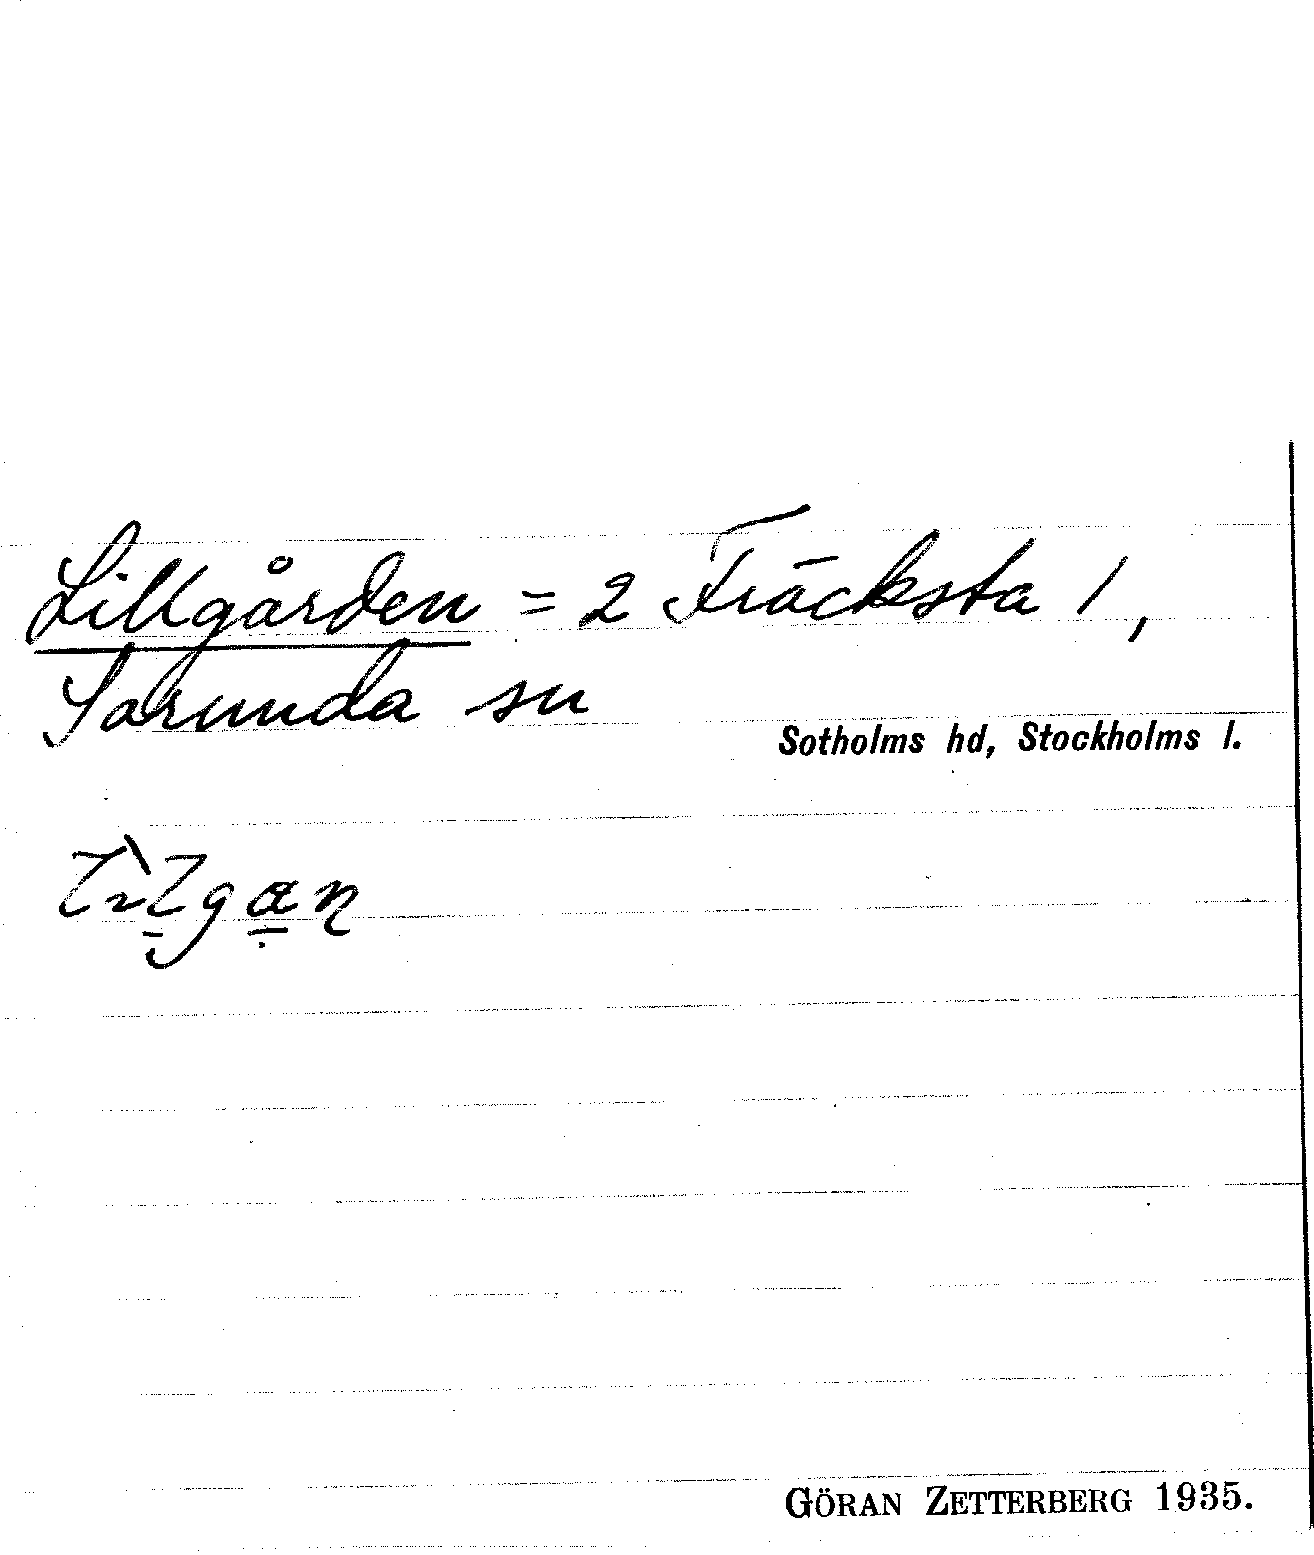 Lillgården = 2 Fräcksta 1,
Sorunda sn
Sotholms hd, Stockholms l.
GÖRAN ZETTERBERG 1935.